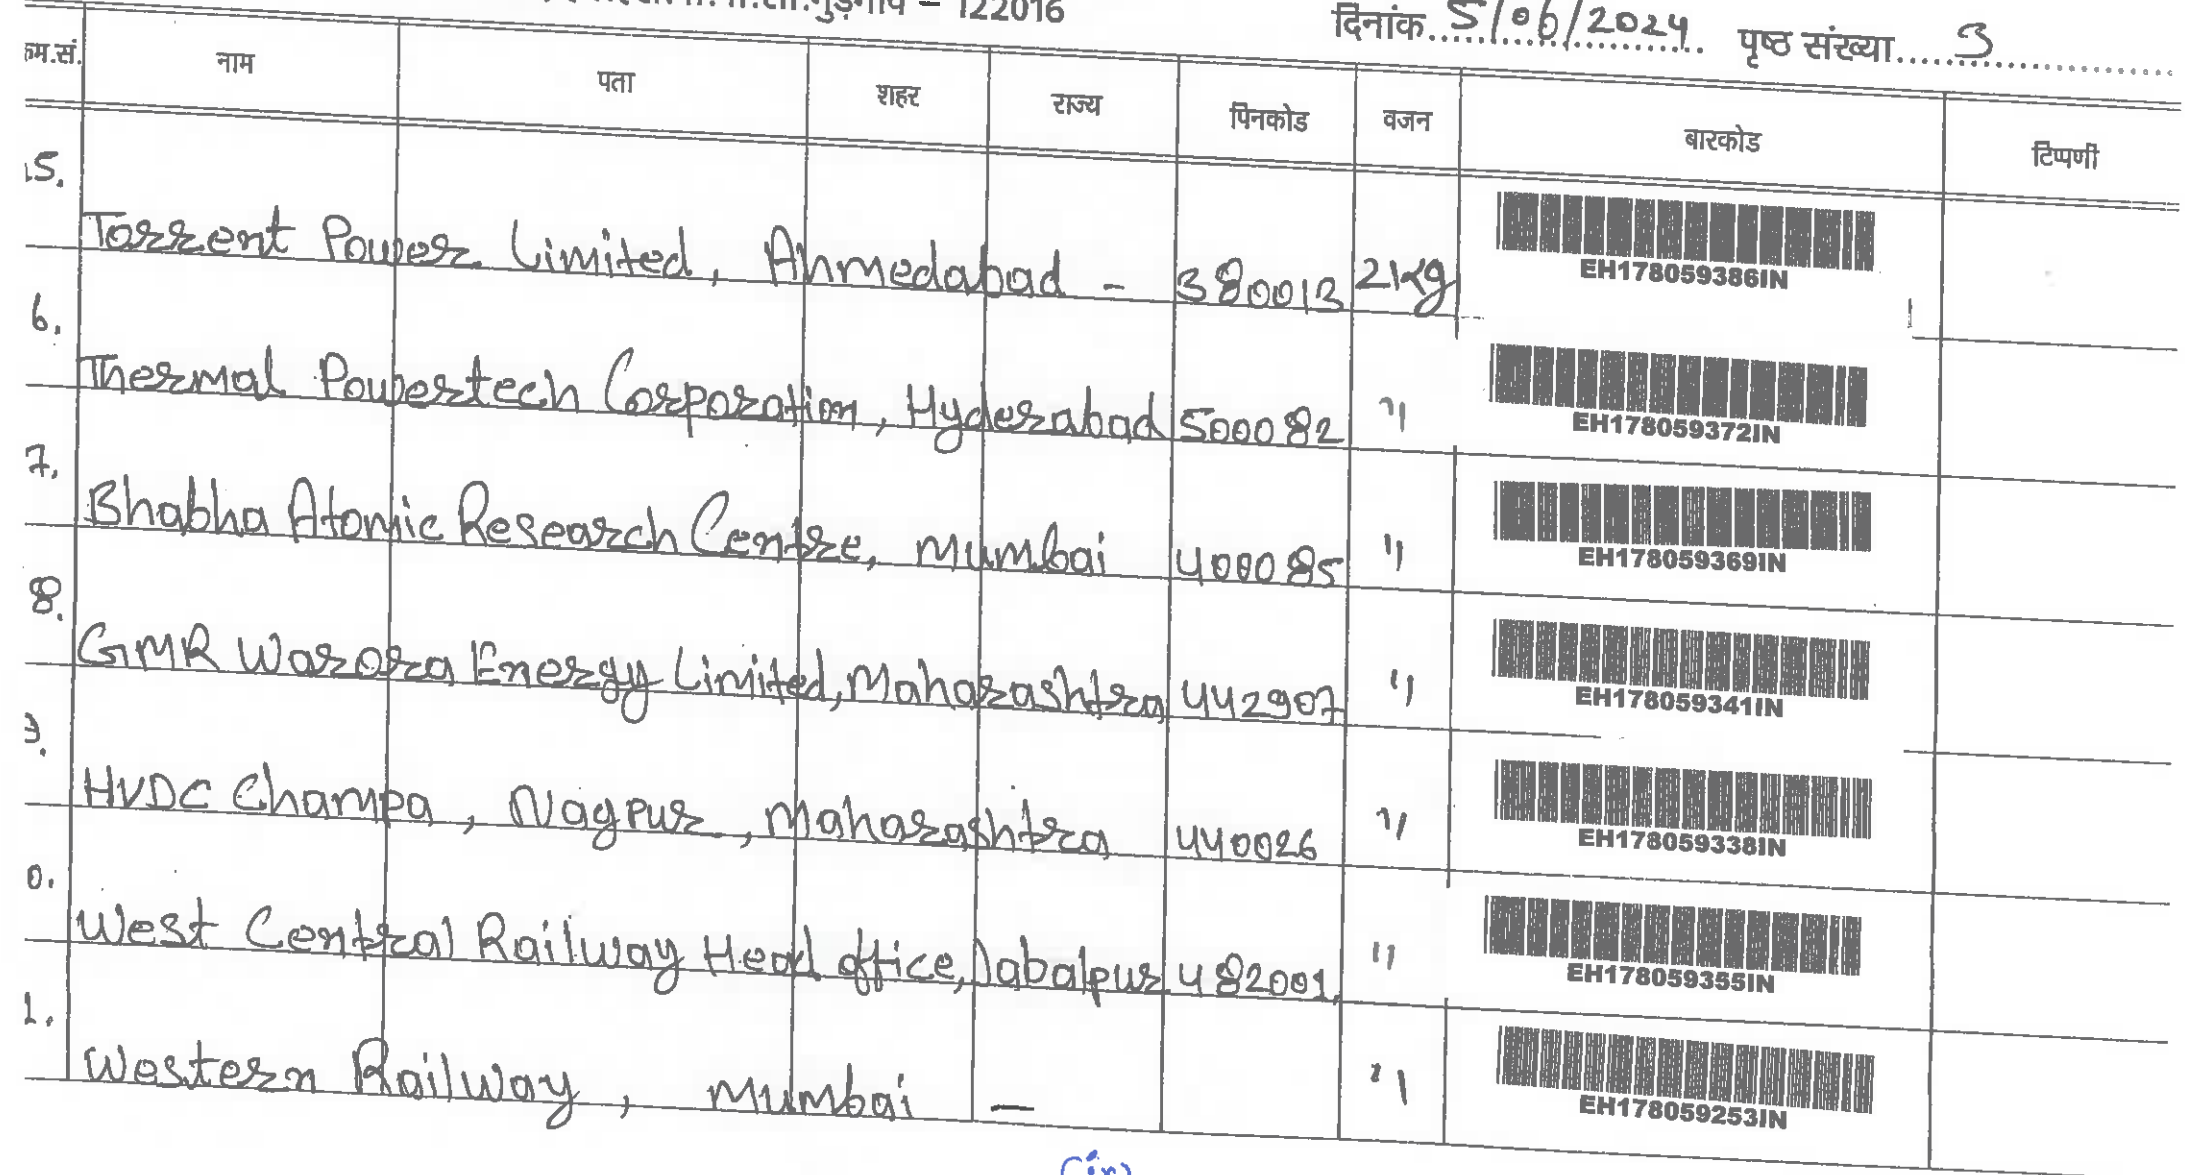 गुड़गांव – 122016
दिनांक 5/06/2024 पृष्ठ संख्या 3
क्रम.सं. नाम पता शहर राज्य पिनकोड वजन बारकोड टिप्पणी
5.
Torrent Power Limited, Ahmedabad - 380013 2Kg EH178059386IN
6.
Thermal Powertech Corporation, Hyderabad 500082 " EH178059372IN
7.
Bhabha Atomic Research Centre, Mumbai 400085 " EH178059369IN
8.
GMR Warora Energy Limited, Maharashtra 442907 " EH178059341IN
9.
HVDC Champa, Nagpur, Maharashtra 440026 " EH178059338IN
0.
West Central Railway Head office, Jabalpur 482001 " EH178059355IN
1.
Western Railway, Mumbai — " EH178059253IN